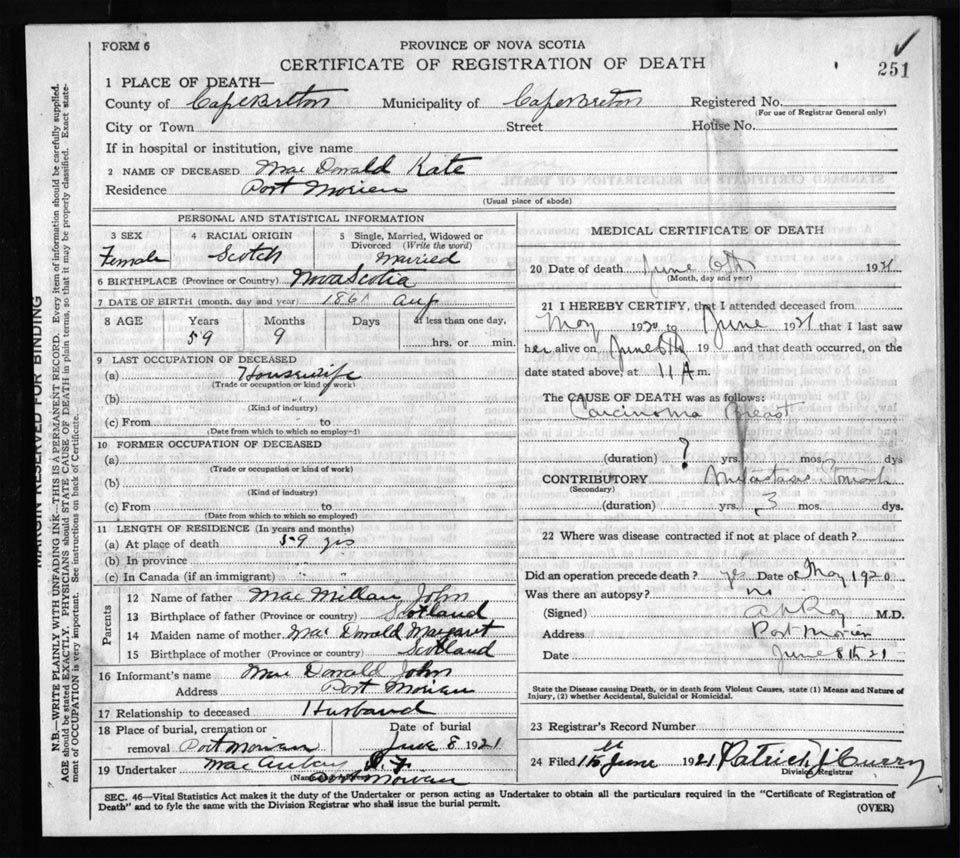 FORM 6
PROVINCE OF NOVA SCOTIA
CERTIFICATE OF REGISTRATION OF DEATH
251
1 PLACE OF DEATH—
County of Cape Breton Municipality of Cape Breton Registered No.
(For use of Registrar General only)
City or Town Street House No.
If in hospital or institution, give name
2 NAME OF DECEASED Mac Donald Kate
Residence Port Morien
(Usual place of abode)
PERSONAL AND STATISTICAL INFORMATION
3 SEX 4 RACIAL ORIGIN 5 Single, Married, Widowed or
Divorced (Write the word)
Female Scotch Married
6 BIRTHPLACE (Province or Country) Nova Scotia
7 DATE OF BIRTH (month, day and year) 1861 Aug
8 AGE Years Months Days If less than one day,
59 9 hrs. or min.
9 LAST OCCUPATION OF DECEASED
(a) Housewife
(Trade or occupation or kind of work)
(b)
(Kind of industry)
(c) From to
(Date from which to which so employed)
10 FORMER OCCUPATION OF DECEASED
(a)
(Trade or occupation or kind of work)
(b)
(Kind of industry)
(c) From to
(Date from which to which so employed)
11 LENGTH OF RESIDENCE (In years and months)
(a) At place of death 59 yrs
(b) In province " "
(c) In Canada (if an immigrant) " "
Parents
12 Name of father Mac Millan John
13 Birthplace of father (Province or country) Scotland
14 Maiden name of mother Mac Donald Margaret
15 Birthplace of mother (Province or country) Scotland
16 Informant's name Mac Donald John
Address Port Morien
17 Relationship to deceased Husband
18 Place of burial, cremation or Date of burial
removal Port Morien June 8 1921
19 Undertaker
Port Morien
MEDICAL CERTIFICATE OF DEATH
20 Date of death June 6th 1921
(Month, day and year)
21 I HEREBY CERTIFY, that I attended deceased from
May 1920 to June 1921 that I last saw
her alive on June 6th 19 and that death occurred, on the
date stated above, at 11 A m.
The CAUSE OF DEATH was as follows:
Carcinoma Breast
(duration) ? yrs. mos. dys
CONTRIBUTORY Metastasis Stomach
(Secondary)
(duration) yrs. 3 mos. dys.
22 Where was disease contracted if not at place of death?
Did an operation precede death? yes Date of May 1920
Was there an autopsy? no
(Signed) M.D.
Address Port Morien
Date June 8th 21
State the Disease causing Death, or in death from Violent Causes, state (1) Means and Nature of
Injury, (2) whether Accidental, Suicidal or Homicidal.
23 Registrar's Record Number
24 Filed June 1921 Patrick J Curry
Division Registrar
SEC. 46—Vital Statistics Act makes it the duty of the Undertaker or person acting as Undertaker to obtain all the particulars required in the "Certificate of Registration of
Death" and to fyle the same with the Division Registrar who shall issue the burial permit.
(OVER)
MARGIN RESERVED FOR BINDING
N.B.—WRITE PLAINLY WITH UNFADING INK—THIS IS A PERMANENT RECORD. Every item of information should be carefully supplied.
AGE should be stated EXACTLY. PHYSICIANS should STATE CAUSE OF DEATH in plain terms, so that it may be properly classified. Exact state-
ment of OCCUPATION is very important. See instructions on back of Certificate.